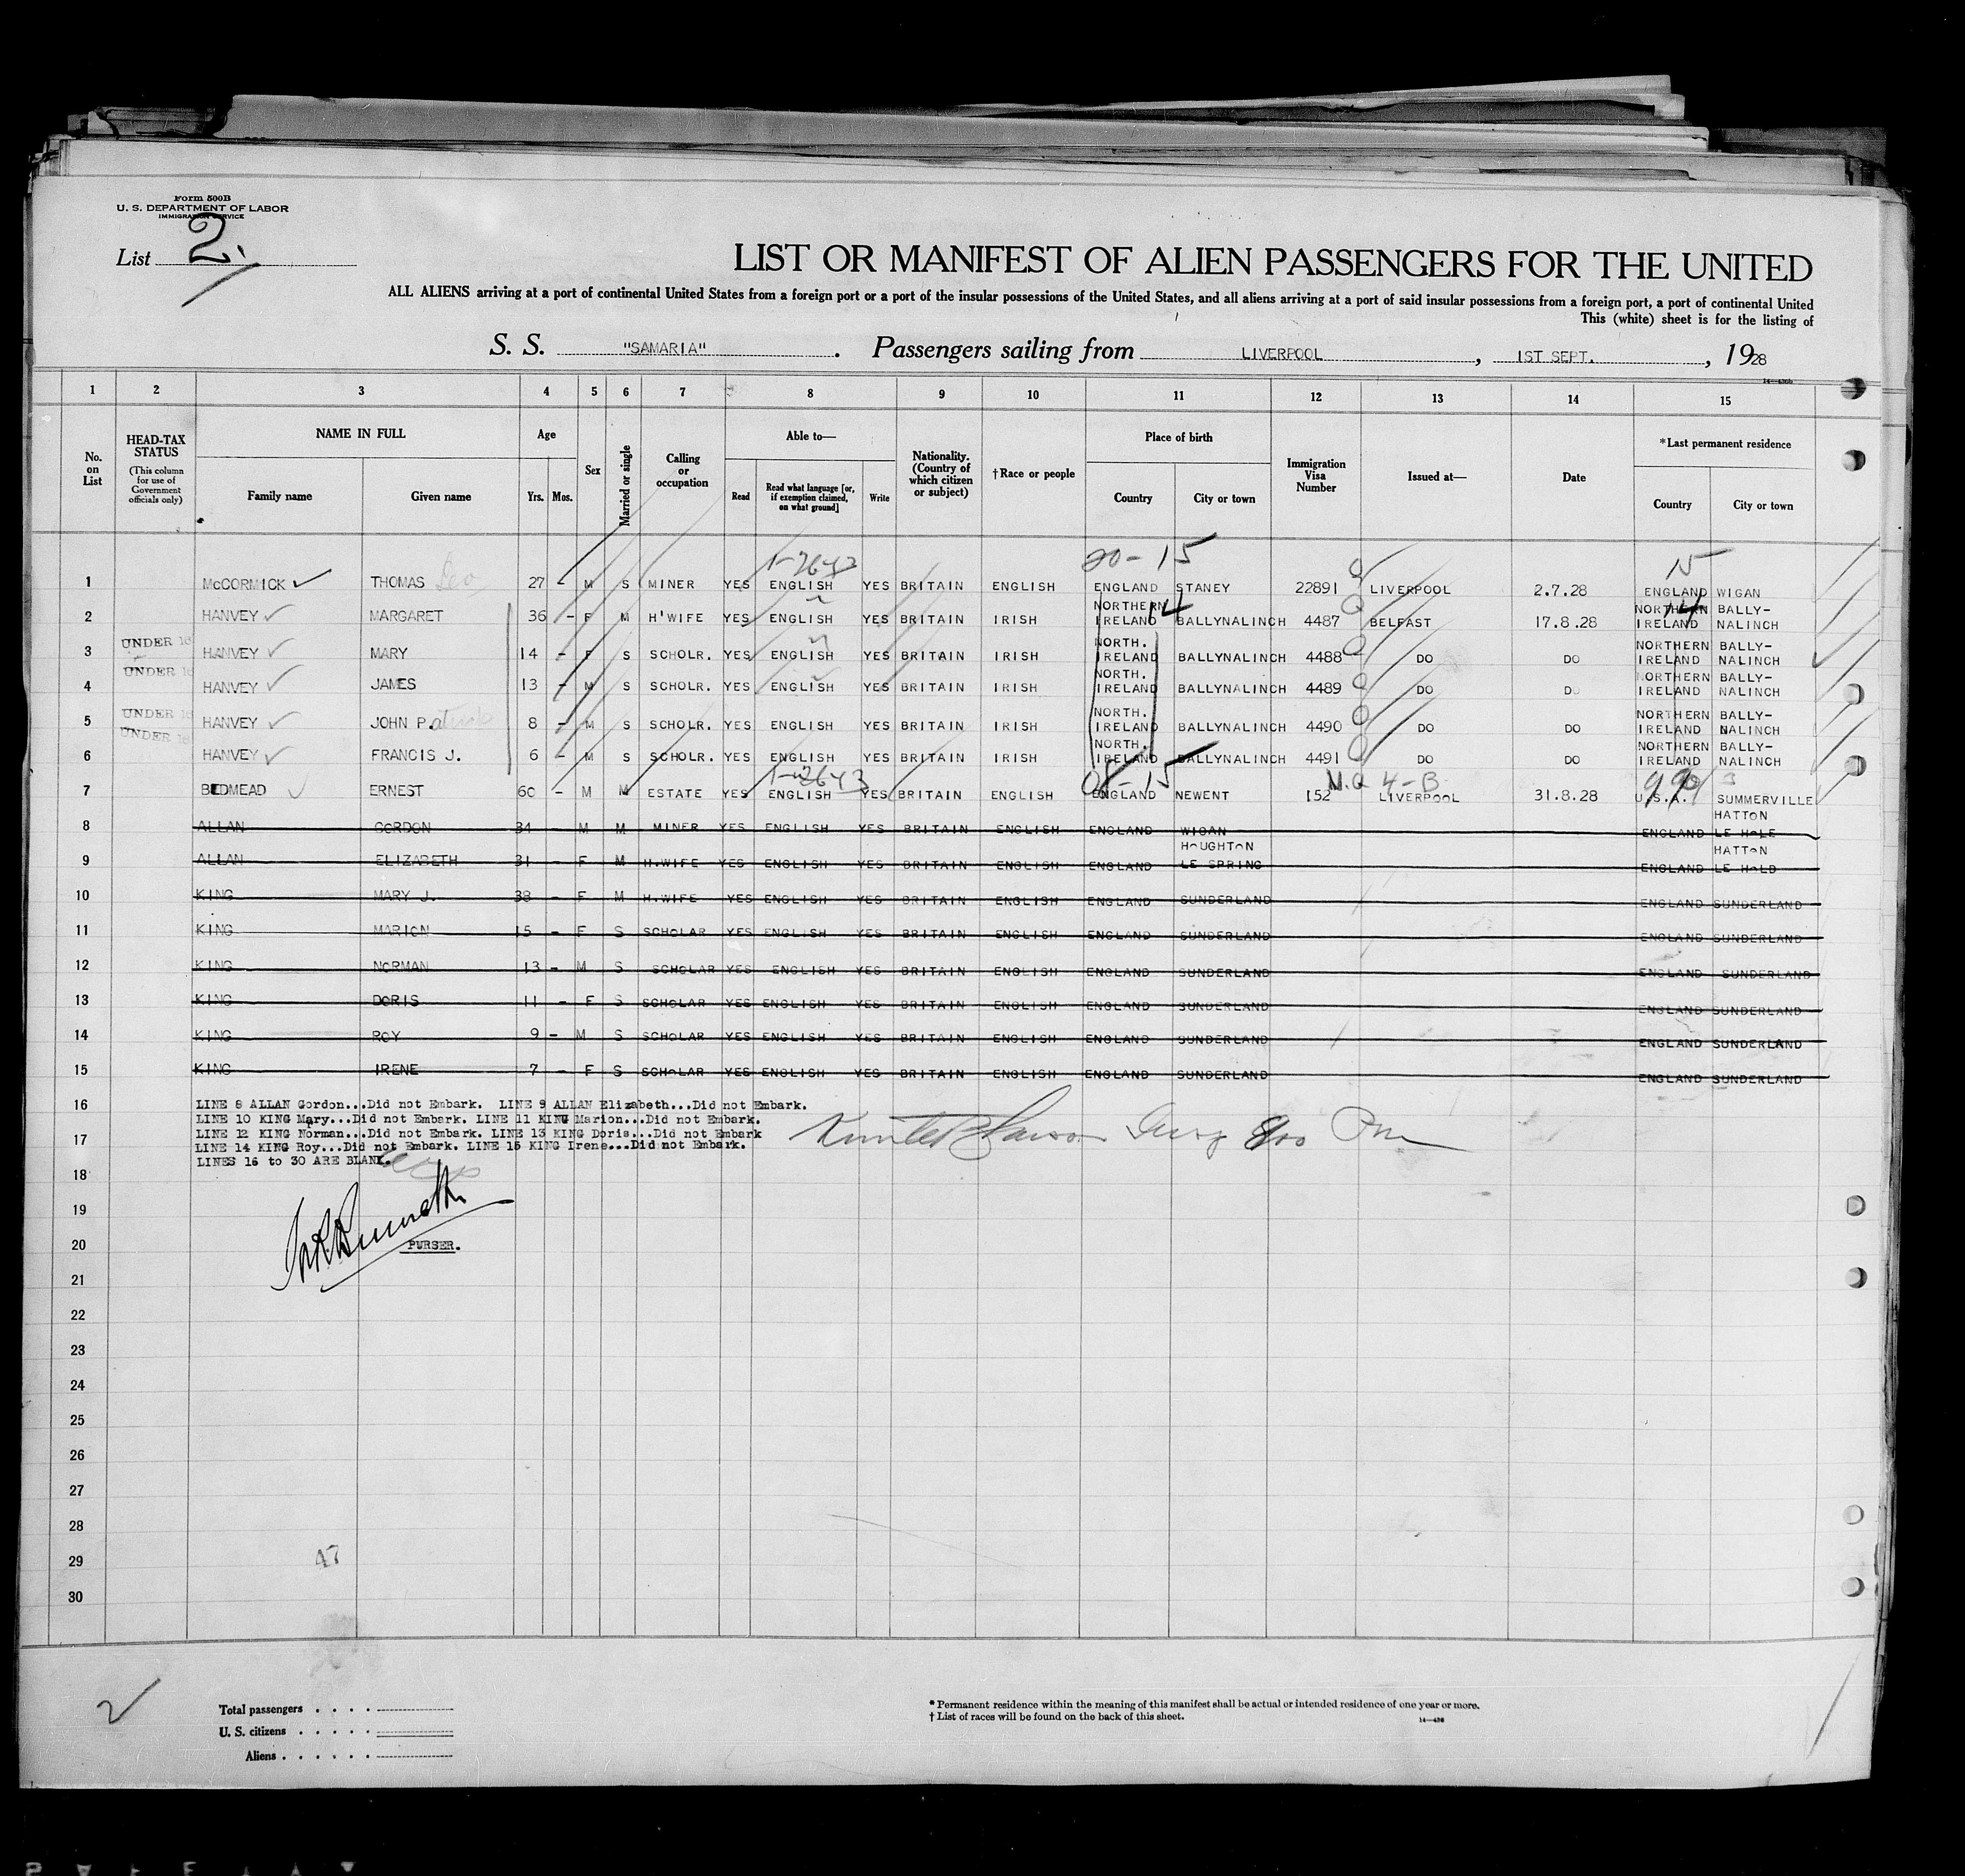 Form 500B
U. S. DEPARTMENT OF LABOR
IMMIGRATION SERVICE
List 2.
LIST OR MANIFEST OF ALIEN PASSENGERS FOR THE UNITED
ALL ALIENS arriving at a port of continental United States from a foreign port or a port of the insular possessions of the United States, and all aliens arriving at a port of said insular possessions from a foreign port, a port of continental United
This (white) sheet is for the listing of
S. S. "SAMARIA" . Passengers sailing from LIVERPOOL , 1ST SEPT. , 1928
1 2 3 4 5 6 7 8 9 10 11 12 13 14 15
No. on List
HEAD-TAX STATUS (This column for use of Government officials only)
NAME IN FULL Family name Given name
Age Yrs. Mos.
Sex
Married or single
Calling or occupation
Able to— Read Read what language [or, if exemption claimed, on what ground] Write
Nationality. (Country of which citizen or subject)
†Race or people
Place of birth Country City or town
Immigration Visa Number
Issued at—
Date
*Last permanent residence Country City or town
20-15 15
1 McCORMICK THOMAS Leo 27 - M S MINER YES ENGLISH YES BRITAIN ENGLISH ENGLAND STANEY 22891 LIVERPOOL 2.7.28 ENGLAND WIGAN
2 HANVEY MARGARET 36 - F M H'WIFE YES ENGLISH YES BRITAIN IRISH NORTHERN IRELAND BALLYNALINCH 4487 BELFAST 17.8.28 NORTHERN IRELAND BALLY-NALINCH
UNDER 16
3 HANVEY MARY 14 - F S SCHOLR. YES ENGLISH YES BRITAIN IRISH NORTH. IRELAND BALLYNALINCH 4488 DO DO NORTHERN IRELAND BALLY-NALINCH
UNDER 16
4 HANVEY JAMES 13 - M S SCHOLR. YES ENGLISH YES BRITAIN IRISH NORTH. IRELAND BALLYNALINCH 4489 DO DO NORTHERN IRELAND BALLY-NALINCH
UNDER 16
5 HANVEY JOHN Patrick 8 - M S SCHOLR. YES ENGLISH YES BRITAIN IRISH NORTH. IRELAND BALLYNALINCH 4490 DO DO NORTHERN IRELAND BALLY-NALINCH
UNDER 16
6 HANVEY FRANCIS J. 6 - M S SCHOLR. YES ENGLISH YES BRITAIN IRISH NORTH. IRELAND BALLYNALINCH 4491 DO DO NORTHERN IRELAND BALLY-NALINCH
7 BEDMEAD ERNEST 60 - M M ESTATE YES ENGLISH YES BRITAIN ENGLISH ENGLAND NEWENT 152 LIVERPOOL 31.8.28 U.S.A. SUMMERVILLE
8 ALLAN GORDON 34 - M M MINER YES ENGLISH YES BRITAIN ENGLISH ENGLAND WIGAN ENGLAND HATTON LE HOLE
9 ALLAN ELIZABETH 31 - F M H.WIFE YES ENGLISH YES BRITAIN ENGLISH ENGLAND HOUGHTON LE SPRING ENGLAND HATTON LE HOLD
10 KING MARY J. 38 - F M H.WIFE YES ENGLISH YES BRITAIN ENGLISH ENGLAND SUNDERLAND ENGLAND SUNDERLAND
11 KING MARION 15 - F S SCHOLAR YES ENGLISH YES BRITAIN ENGLISH ENGLAND SUNDERLAND ENGLAND SUNDERLAND
12 KING NORMAN 13 - M S SCHOLAR YES ENGLISH YES BRITAIN ENGLISH ENGLAND SUNDERLAND ENGLAND SUNDERLAND
13 KING DORIS 11 - F S SCHOLAR YES ENGLISH YES BRITAIN ENGLISH ENGLAND SUNDERLAND ENGLAND SUNDERLAND
14 KING ROY 9 - M S SCHOLAR YES ENGLISH YES BRITAIN ENGLISH ENGLAND SUNDERLAND ENGLAND SUNDERLAND
15 KING IRENE 7 - F S SCHOLAR YES ENGLISH YES BRITAIN ENGLISH ENGLAND SUNDERLAND ENGLAND SUNDERLAND
16 LINE 8 ALLAN Gordon...Did not Embark. LINE 9 ALLAN Elizabeth...Did not Embark.
LINE 10 KING Mary...Did not Embark. LINE 11 KING Marion...Did not Embark.
17 LINE 12 KING Norman...Did not Embark. LINE 13 KING Doris...Did not Embark
LINE 14 KING Roy...Did not Embark. LINE 15 KING Irene...Did not Embark.
LINES 16 to 30 ARE BLANK.
18
19
20 PURSER.
21
22
23
24
25
26
27
28
29 47
30
2
Total passengers . . . .
U. S. citizens . . . . .
Aliens . . . . . .
* Permanent residence within the meaning of this manifest shall be actual or intended residence of one year or more.
† List of races will be found on the back of this sheet.